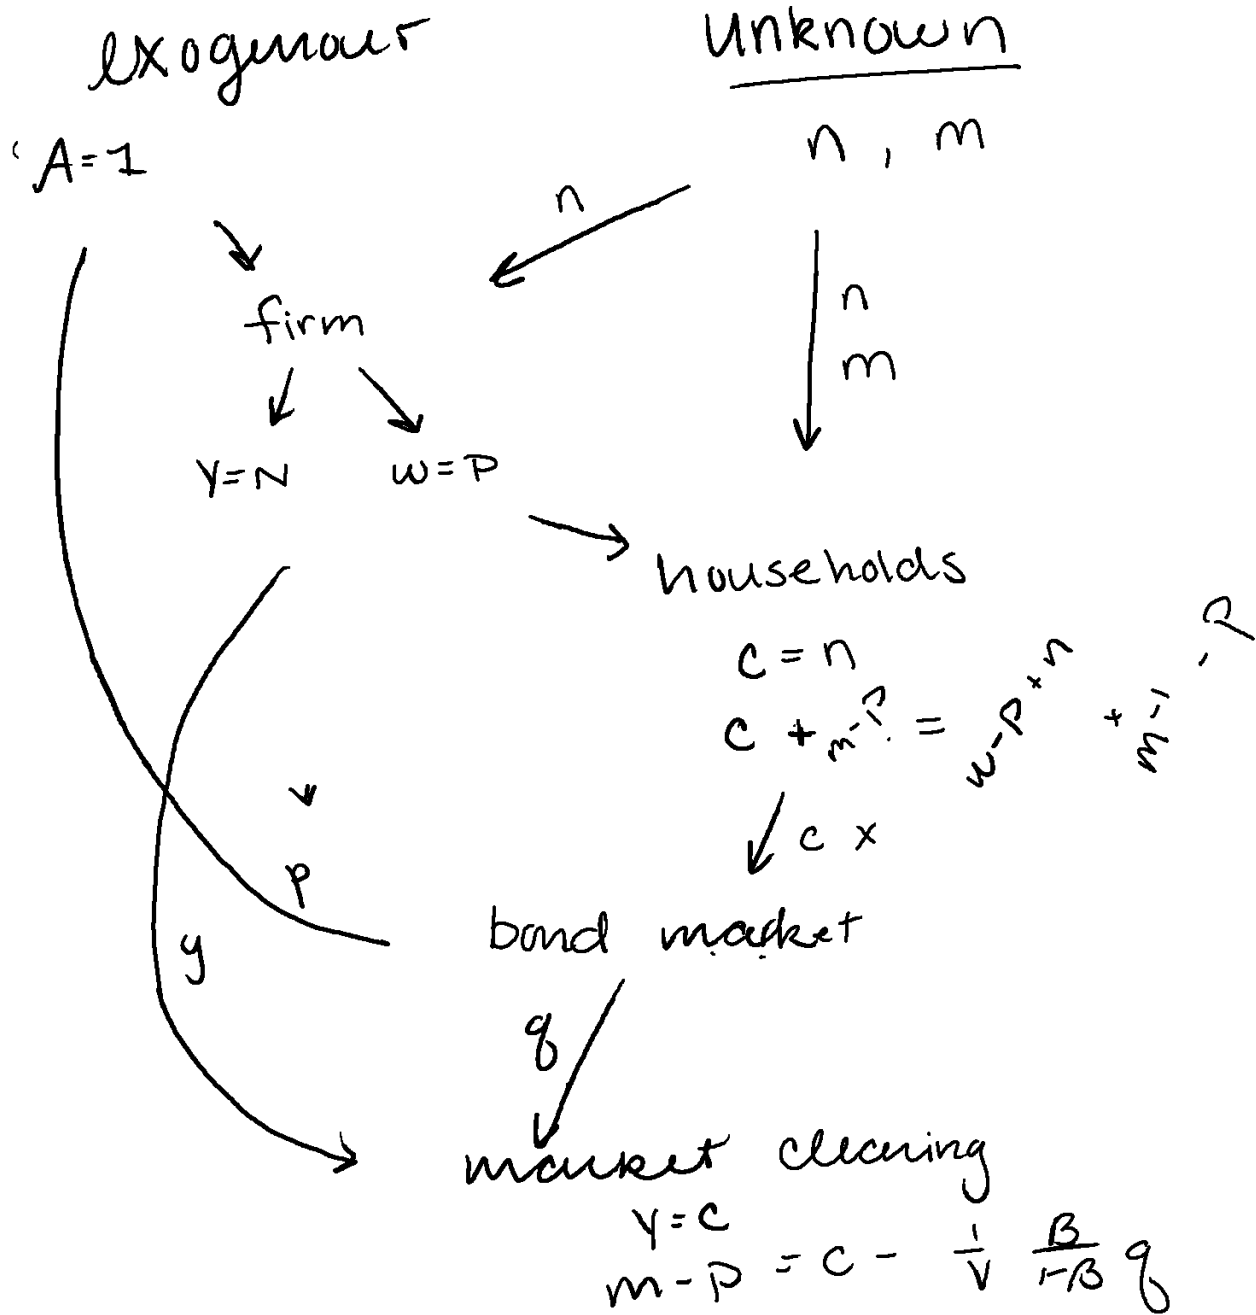 exogenous
unknown
A=1
n, m
n
n
m
firm
Y=N
w=P
households
c = n
c + m-P = w-P+n + m-1 - P
c x
p
bond market
y
q
market clearing
Y=C
m-p = c - 1/V B/1-B q